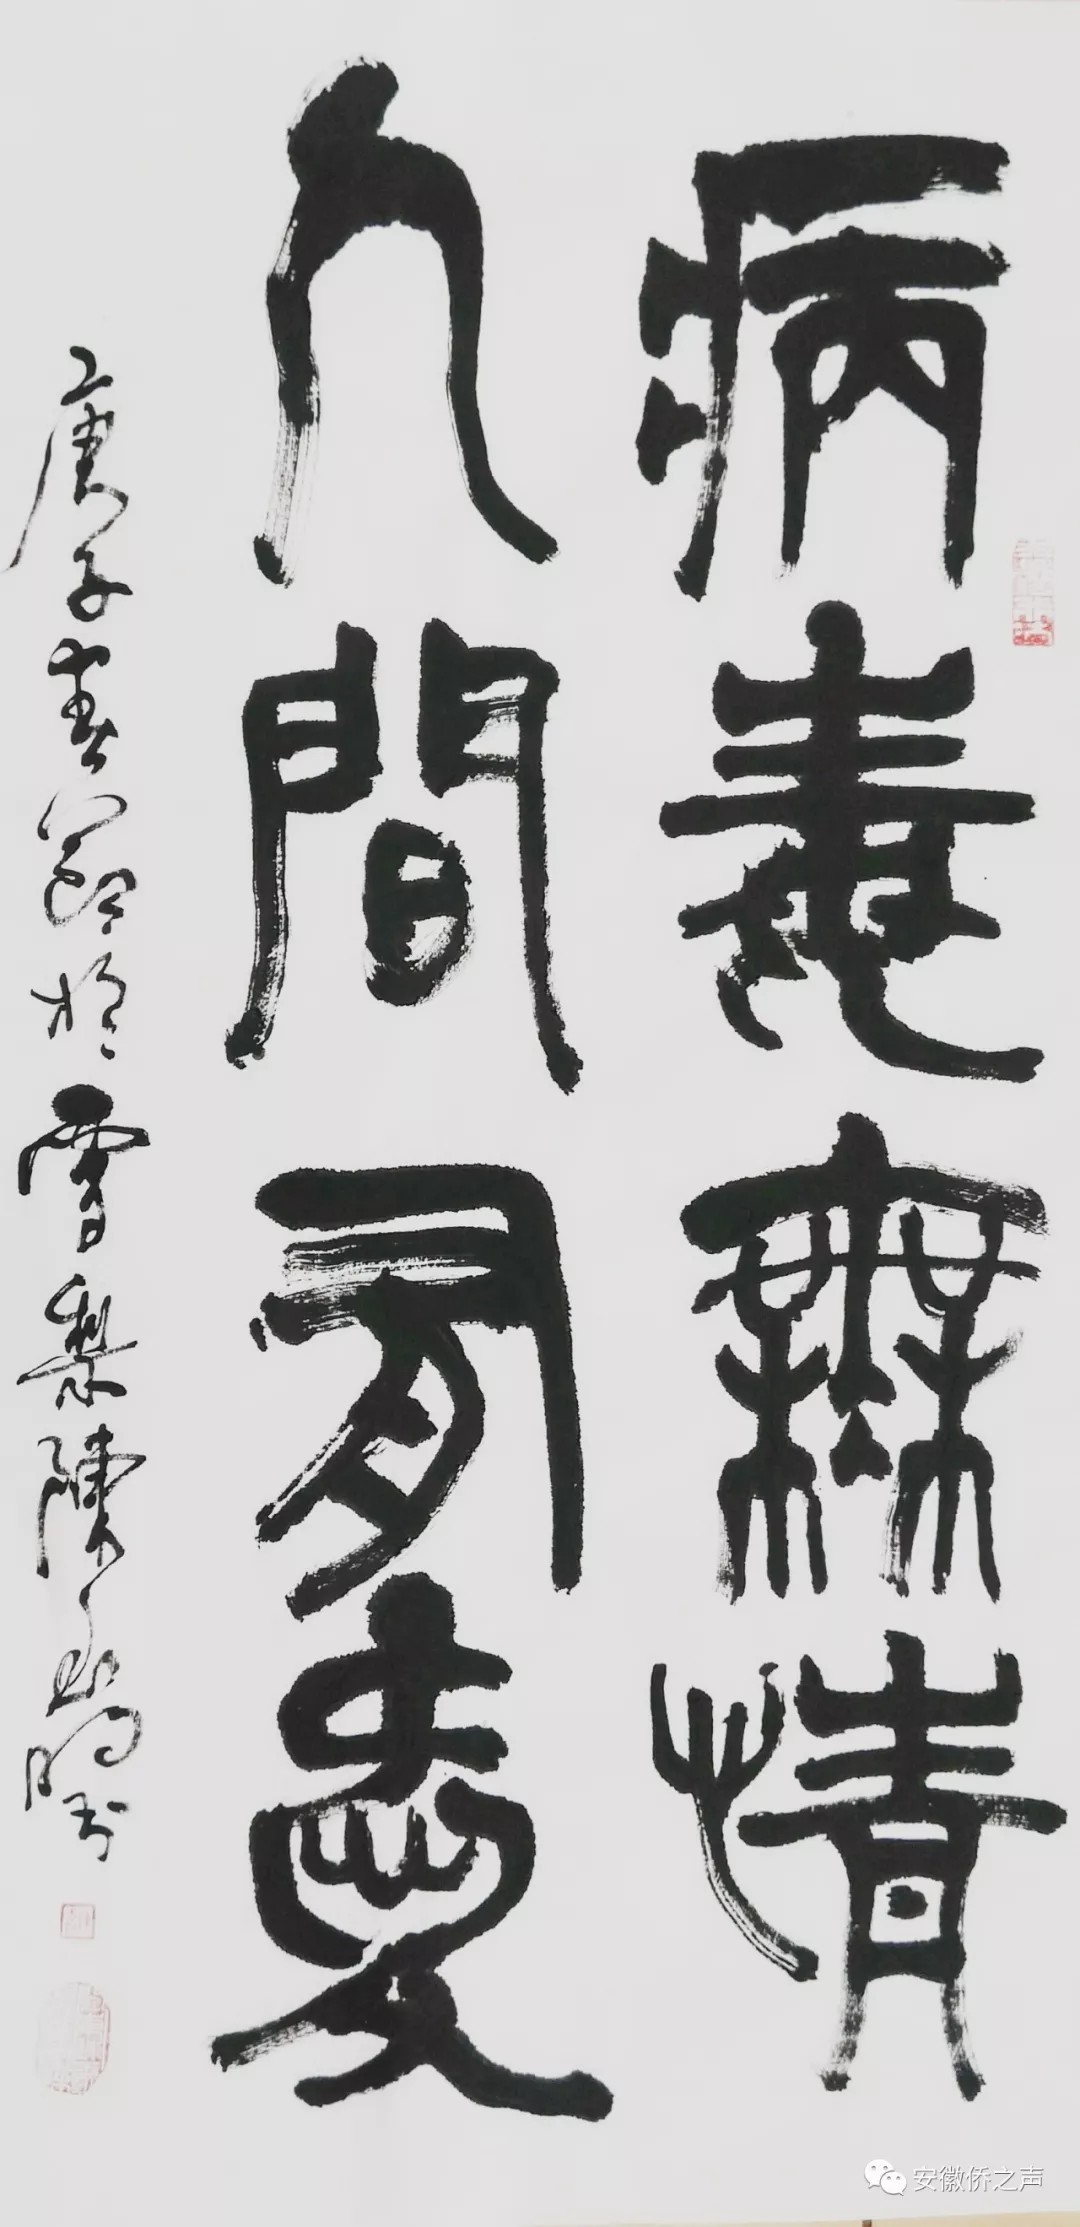 病毒無情
人間有愛
庚子春節於雪
安徽侨之声